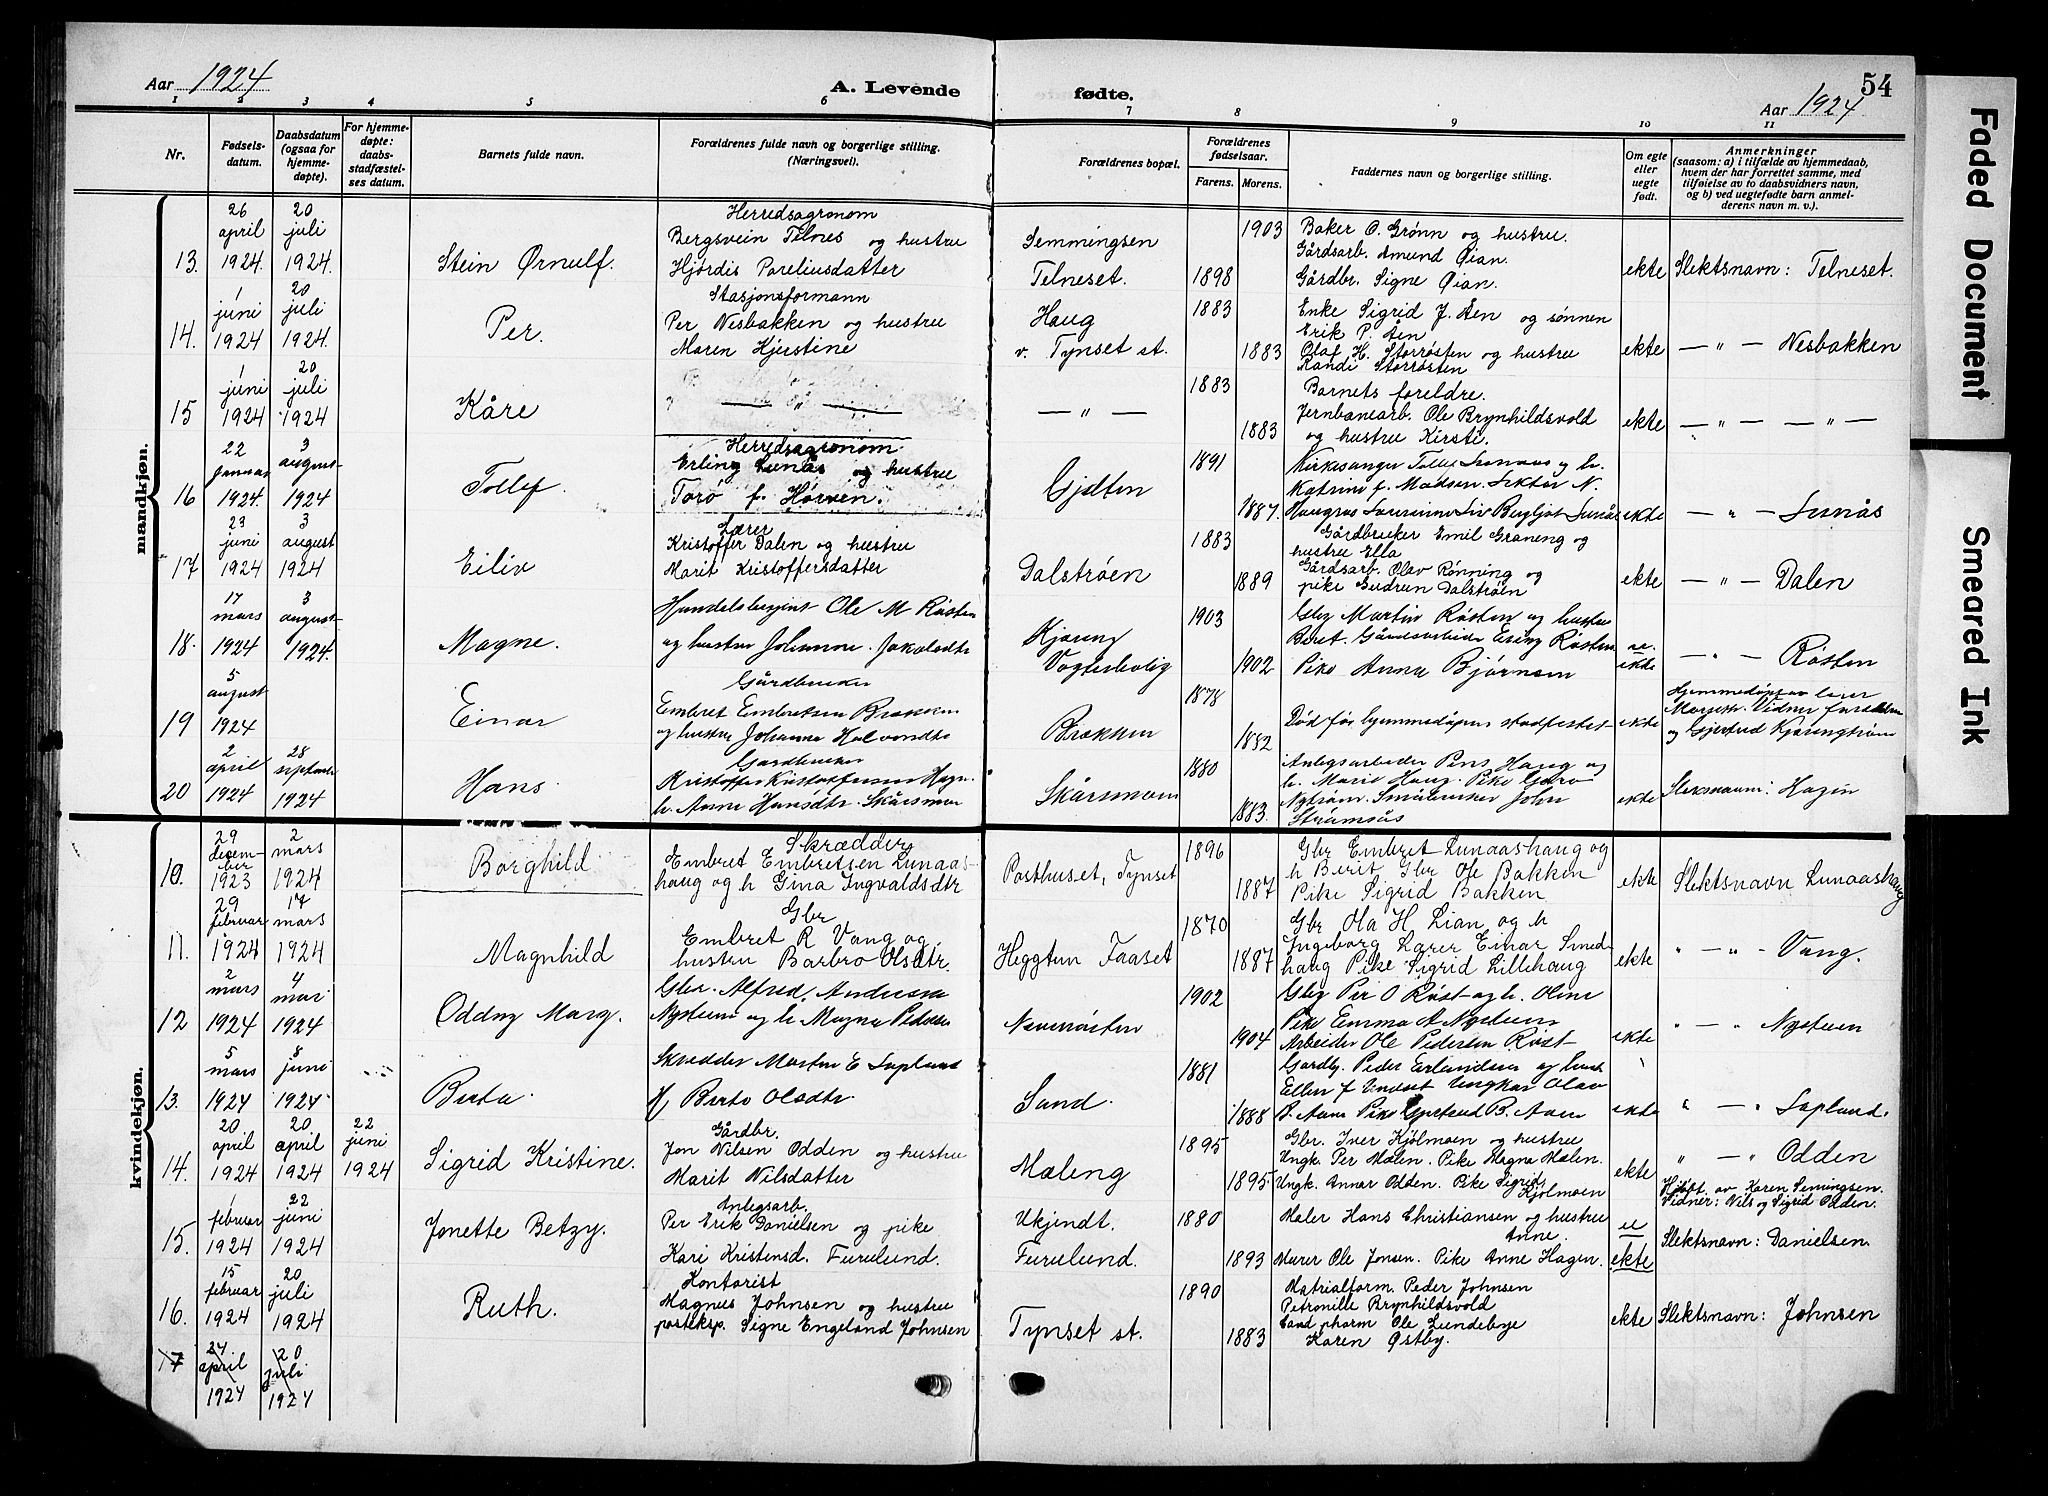 Aar 1924
A. Levende fødte.
54
Aar 1924
1 2 3 4 5 6 7 8 9 10 11
Nr.
Fødsels-
datum.
Daabsdatum
(ogsaa for
hjemme-
døpte).
For hjemme-
døpte:
daabs-
stadfæstel-
ses datum.
Barnets fulde navn.
Forældrenes fulde navn og borgerlige stilling.
(Næringsvei).
Forældrenes bopæl.
Forældrenes
fødselsaar.
Farens. Morens.
Faddernes navn og borgerlige stilling.
Om egte
eller
uegte
født.
Anmerkninger
(saasom: a) i tilfælde av hjemmedaab,
hvem der har forrettet samme, med
tilføielse av to daabsvidners navn,
og b) ved uegtefødte barn anmel-
derens navn m. v.).
mandkjøn.
13.
26
april
1924.
20
juli
1924.
Stein Ørnulf.
Herredsagronom
Bergsvein Telnes og hustru
Hjördis Pareliusdatter
Semmingsen
Telneset.
1903
1898
Baker O. Grønn og hustru.
Gårdsarb. Amund Øian.
Gårdbr. Signe Øian.
ekte
Slektsnavn: Telneset.
14.
1
juni
1924
20
juli
1924.
Per.
Stasjonsformann
Per Nesbakken og hustru
Maren Kjerstine
Haug
v. Tynset st.
1883
1883
Enke Sigrid J. Aen og sønnen
Erik P. Aen
Olaf H. Storrøsten og hustru
Randi Storrøsten
ekte
— " — Nesbakken
15
1
juni
1924
20
juli
1924
Kåre
— " —
— " —
1883
1883
Barnets foreldre.
Jernbanearb. Ole Brynhildsvold
og hustru Kirsti.
ekte
— " — — " —
16
22
Januar
1924.
3
august
1924
Tollef.
Herredsagronom
Erling Lunås og hustru
Torø f. Horven.
Gjelten
1891
1887.
Kirkesanger Tollef Lunaas og h.
Katrine f. Madsen.
ekte
— " — Lunås
17
23
juni
1924
3
august
1924
Eiliv
Lærer
Kristoffer Dalen og hustru
Marit Kristoffersdatter
Dalstrøen
1883
1889
Gårdbruker Emil Graneng og
hustru Ella
Gårdsarb. Olav Rønning og
pike Gudrun Dalstrøen
ekte
— " — Dalen
18.
17
mars
1924
3
august
1924.
Magne.
Handelsbetjent Ole M Røsten
og hustru Johanne Jakobsdtr
Kjøreng
Vogterbolig
1903
1902
Gbg Martin Røsten og hustru
Beret. Gårdsarbeider Esing Røsten
Pike Anna Bjørnsen
ekte
— " — Røsten
19
5
august
1924
Einar
Gårdbruker
Embret Embretsen Brakken
og hustru Johanna Halvorsdtr
Brakken
1878
1882
Død før hjemmedåpens stadfestet
ekte
og Gjertrud Kjøringtrøen
20
2
april
1924
28
september
1924
Hans.
Gardbruker
Kristoffer Kristoffersen Hagen
h. Anne Hansdtr. Skårsmoen
Skårsmoen
1880
1883.
Anlegsarbeider Pens Haug og
h. Marie Haug. Pike Guro
Nytrøen. Småbruker John
Strømsås
ekte
Sleksnavn: Hagen
kvindekjøn.
10.
29
decem-
ber
1923
2
mars
1924
Borghild
Skrædder
Embret Embretsen Lunaas-
haug og h Gina Ingvaldsdtr
Posthuset, Tynset
1896
1887
Gbr Embret Lunaashaug og
h Berit Gbr Ole Bakken
Pike Sigrid Bakken
ekte
Slektsnavn Lunaashaug
11.
29
februar
1924
17
mars
1924
Magnhild
Gbr
Embret R Vang og
hustru Barbro Olsdtr.
Heggtun Faaset
1870
1887
Gbr Ola H Lian og h
Ingeborg Lærer Einar Smed-
haug Pike Sigrid Lillehaug
ekte
" — " - Vang.
12
2
mars
1924
4
mai
1924
Oddny Marg.
Gbr. Alfred Andersen
Nysteen og h Magna Pedersen
1902
1904
Gbg Per O Røst og h. Oline
Pike Emma A Nysteen
Arbeider Ole Pedersen Røst
ekte
" — " Nysteen
13.
5
mars
1924
8
juni
1924
Berta
Skredder Morten E Sæplund
Hf Berte Olsdtr.
Sand.
1881
1888
Gardby. Peder Erlandsen og hust
Ellen f Undset Ungkar Olav
B. Aaen Pike Gjertrud B. Aaen
ekte
" — " Sæplund.
14.
20
april
1924
20
april
1924
22
juni
1924
Sigrid Kristine.
Gårdbr.
Jon Nilsen Odden og hustru
Marit Nilsdatter
Mæleng
1895
1895
Gbr. Iver Kjølmoen og hustru
Ungk. Per Mælen. Pike Magna Mælen.
Ungk. Annar Odden. Pike Sigrid
Kjølmoen
ekte
" — " Odden
Hjdøpt. av Karen Semingsen.
Vidner: Nils og Sigrid Odden.
15.
1
februar
1924
22
juni
1924
Jonette Betzy.
Anlegsarb.
Per Erik Danielsen og pike
Kari Kristensd. Furulund.
Ukjendt.
Furulund.
1880
1893
Maler Hans Christiansen og hustru
Anne.
Murer Ole Jensen. Pike Anne Hagen.
u
ekte
Slektsnavn: Danielsen.
16.
15
februar
1924
20
juli
1924
Ruth.
Kontorist
Magnus Johnsen og hustru
posteksp. Signe Engeland Johnsen
Tynset st.
1890
1883
Matrialform. Peder Johnsen
Petronille Brynhildsvold
Cand pharm Ole Lundebye
Karen Østby.
ekte
Slektsnavn: Johnsen
17
24
april
1924
20
juli
1924
Faded Document
Smeared Ink